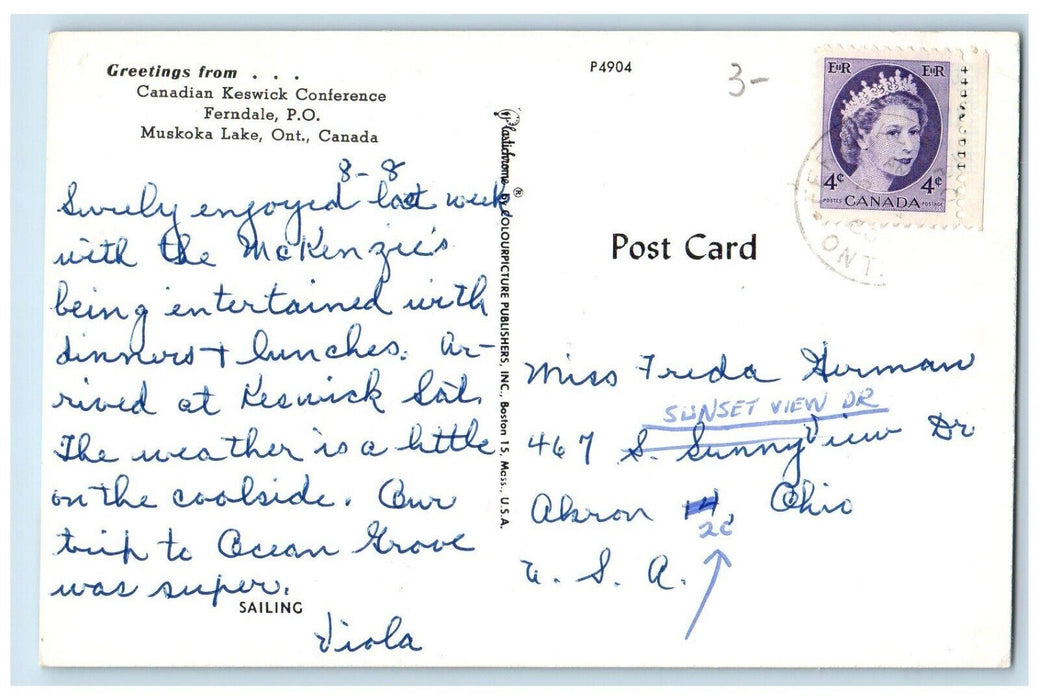 Greetings from . . .
Canadian Keswick Conference
Ferndale, P.O.
Muskoka Lake, Ont., Canada
8-8
Surely enjoyed last week
with the McKenzie's
being entertained with
dinners + lunches. Ar-
rived at Keswick Sat.
The weather is a little
on the coolside. Our
trip to Ocean Grove
was super.
SAILING
Viola
Plastichrome ® by COLOURPICTURE PUBLISHERS, INC., Boston 15, Mass., U.S.A.
P4904
3-
EIIR EIIR
4¢ 4¢
POSTES CANADA POSTAGE
ONT.
Post Card
Miss Freda Herman
SUNSET VIEW DR
467 S. Sunnyview Dr
Akron 14, Ohio
U. S. A.